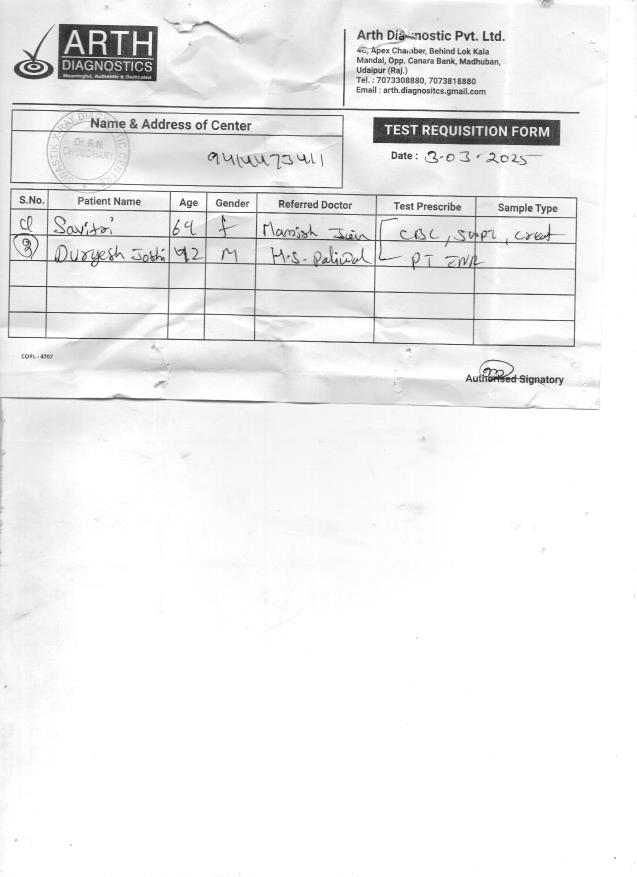 ARTH
DIAGNOSTICS
Meaningful, Authentic & Dedicated
Arth Diagnostic Pvt. Ltd.
4C, Apex Chamber, Behind Lok Kala
Mandal, Opp. Canara Bank, Madhuban,
Udaipur (Raj.)
Tel. : 7073308880, 7073818880
Email : arth.diagnositcs.gmail.com
Name & Address of Center
Dr. R.N.
CHOUDHARY
9414473411
TEST REQUISITION FORM
Date : 3-03-2025
S.No. Patient Name Age Gender Referred Doctor Test Prescribe Sample Type
Savitri 64 f Manish Jain CBC, , Creat
Durgesh Joshi 42 M H.S. Paliwal PT INR
COPL - 4707
Authorised Signatory